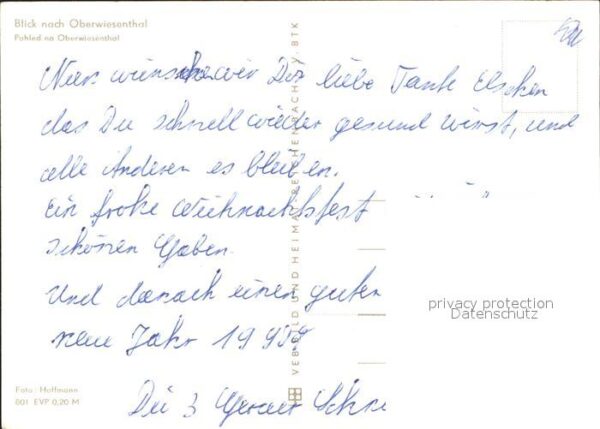 Blick nach Oberwiesenthal
Pohled na Oberwiesenthal
Nun wünschen wir Dir liebe Tante Elschen
das Du schnell wieder gesund wirst, und
alle Anderen es bleiben.
Ein frohe Weihnachtsfest
schönen Gaben.
Und danach einen guten
neue Jahr 19
Die 3 Geraer
VEB BILD UND HEIMAT REICHENBACH I. V. BTK
privacy protection
Datenschutz
Foto: Hoffmann
801 EVP 0,20 M